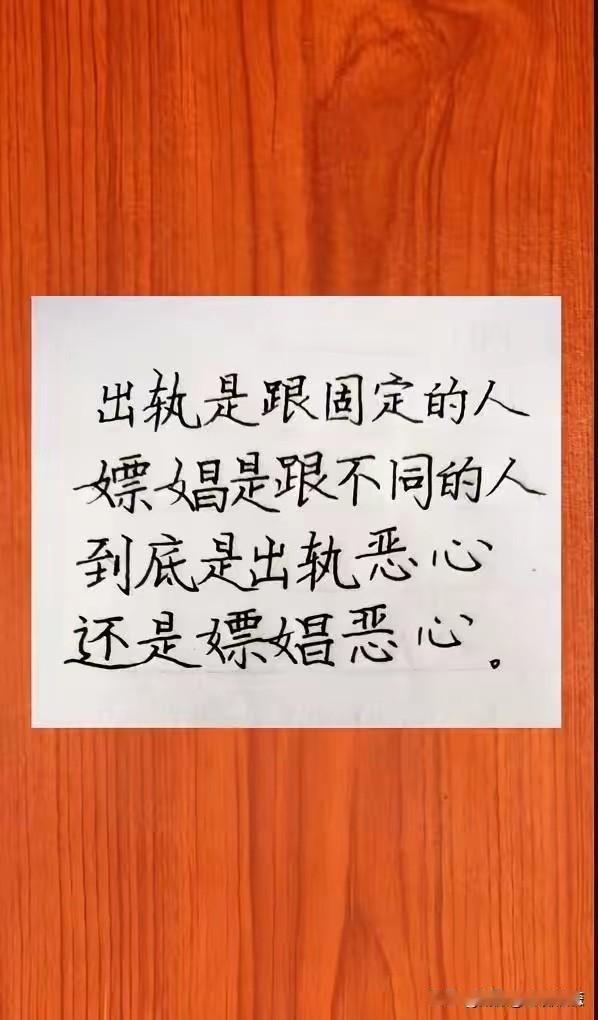 出轨是跟固定的人
嫖娼是跟不同的人
到底是出轨恶心
还是嫖娼恶心。